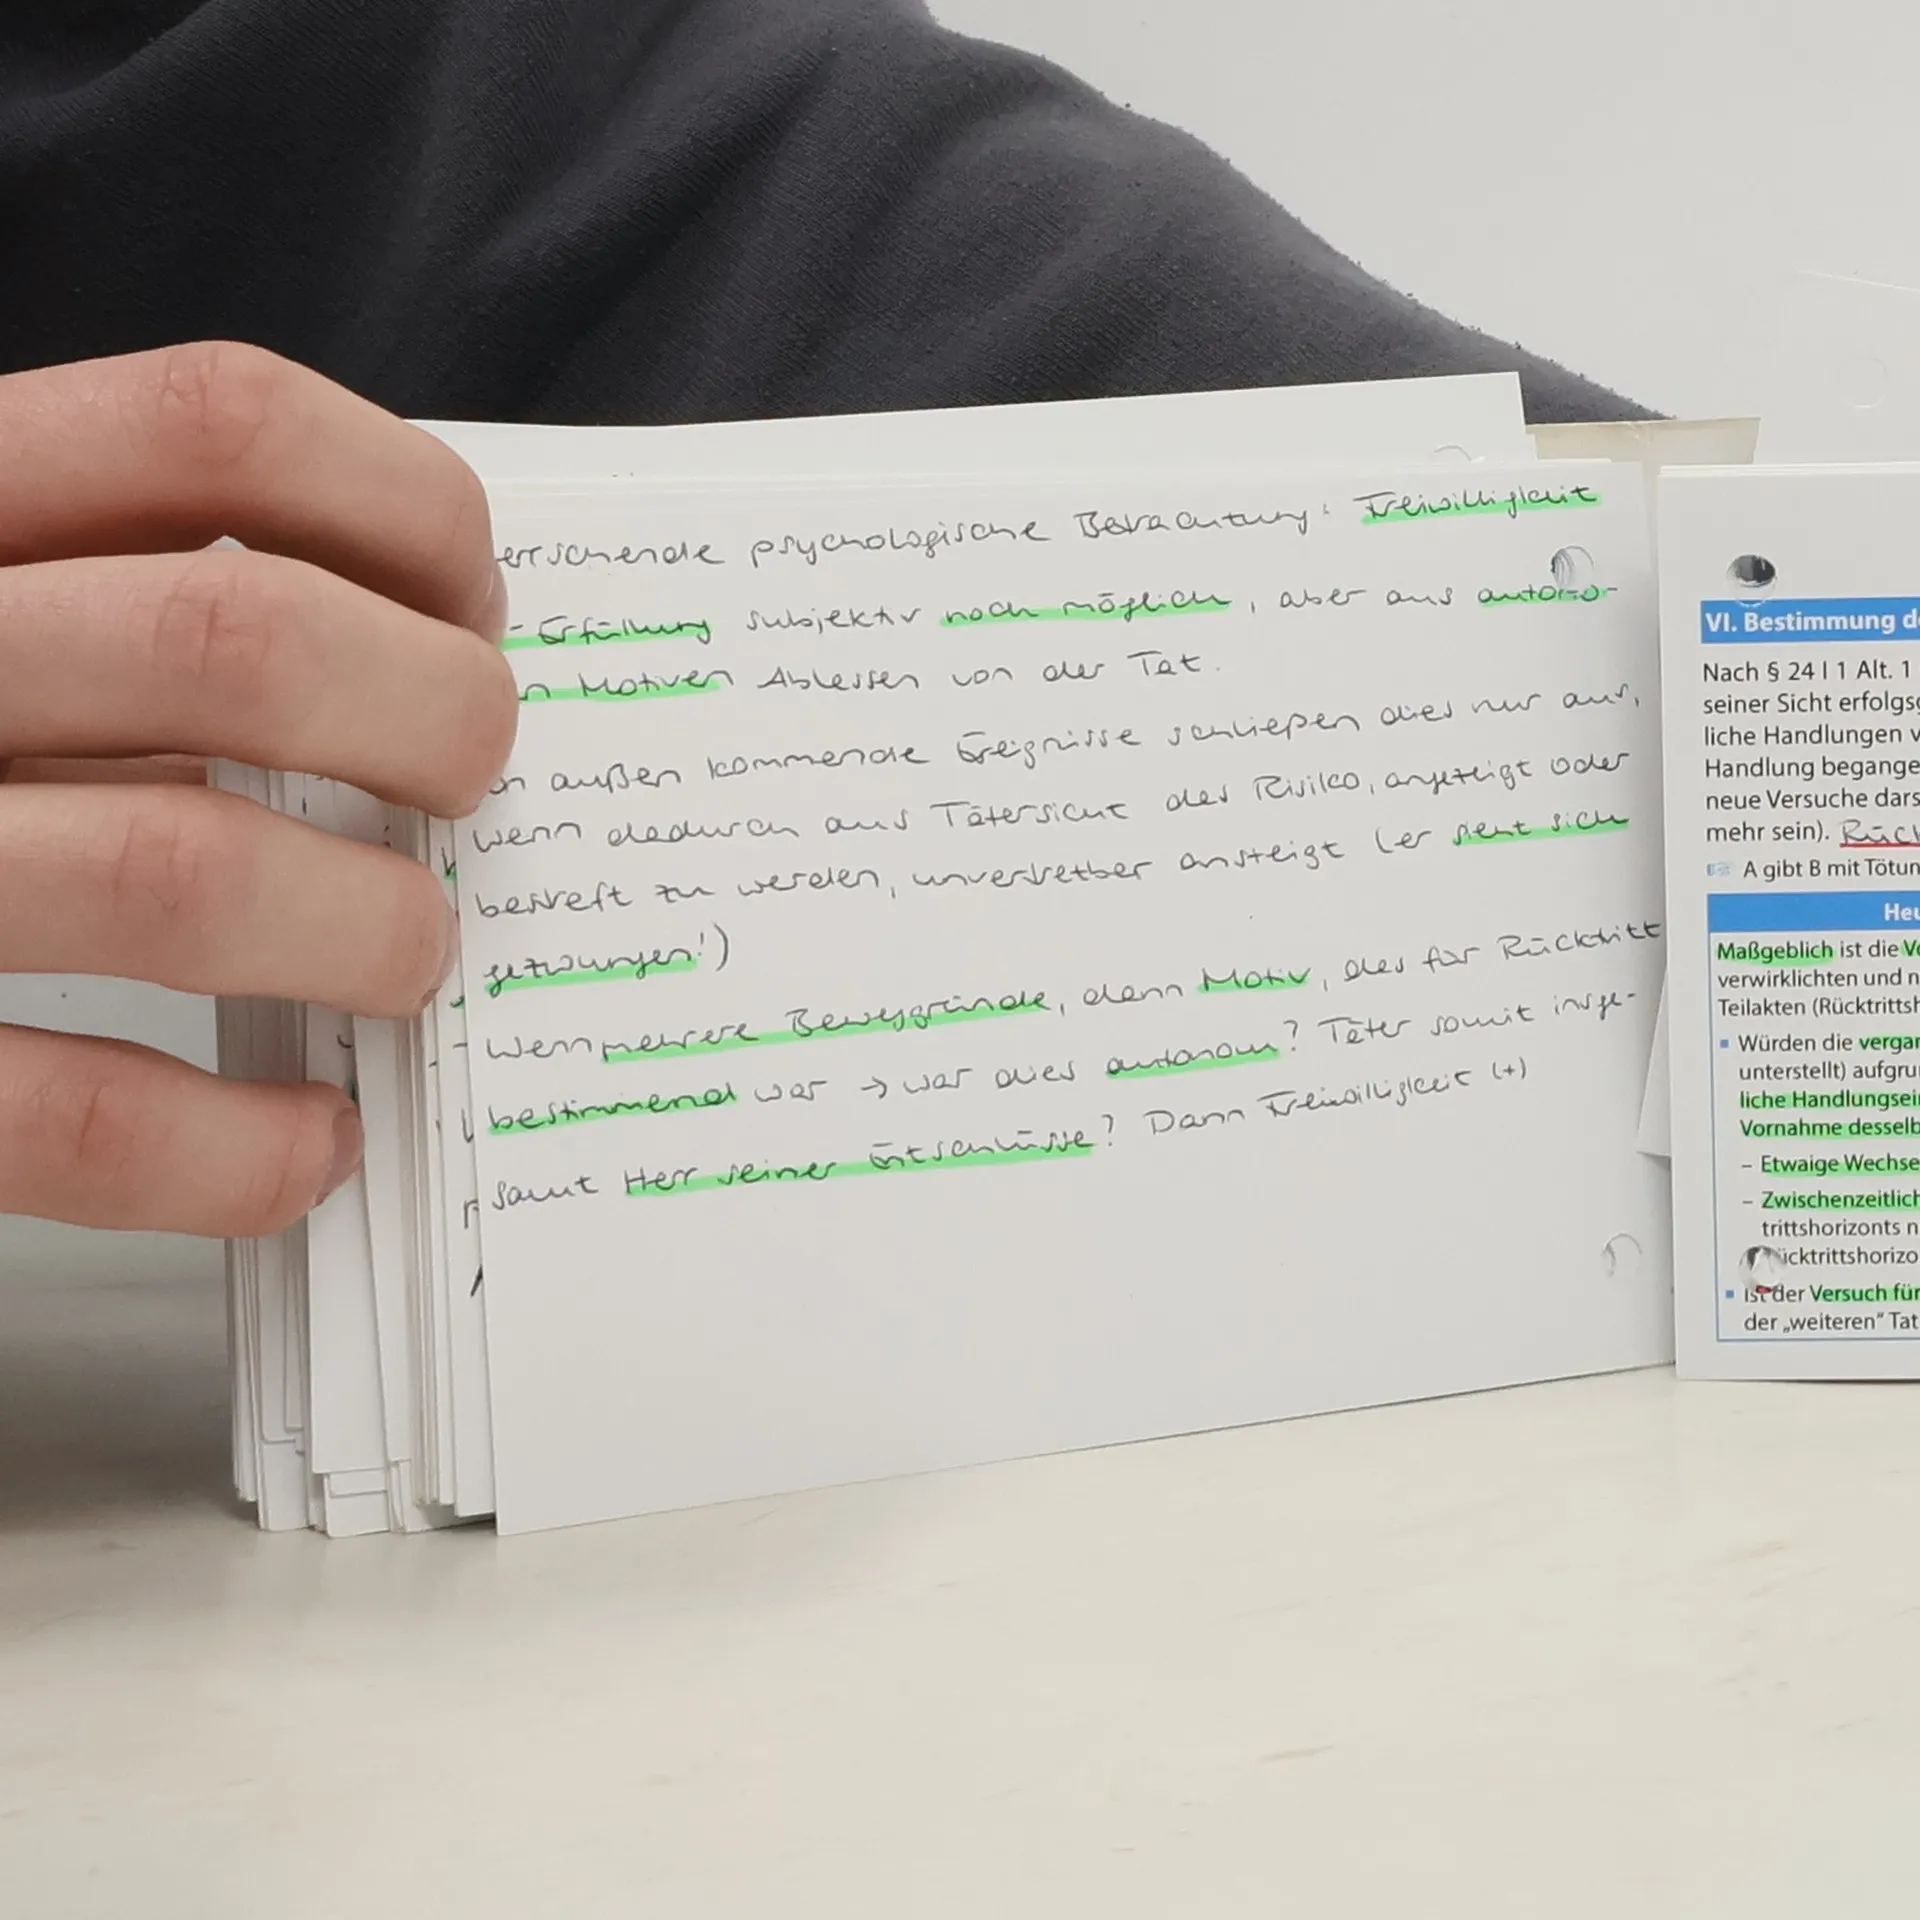 errschende psychologische Betrachtung: Freiwilligkeit
- Erfüllung subjektiv noch möglich, aber aus autono-
n Motiven Ablassen von der Tat.
on außen kommende Ereignisse schließen dies nur aus,
wenn dadurch aus Tätersicht das Risiko, angezeigt oder
bestraft zu werden, unvertretbar ansteigt (er sieht sich
gezwungen!)
Wenn mehrere Beweggründe, dann Motiv, das für Rücktritt
bestimmend war → war dies autonom? Täter somit insge-
samt Herr seiner Entschlüsse? Dann Freiwilligkeit (+)
VI. Bestimmung d
Nach § 24 I 1 Alt. 1
seiner Sicht erfolgs
liche Handlungen v
Handlung begange
neue Versuche dars
mehr sein). Rück
A gibt B mit Tötun
Heu
Maßgeblich ist die Vo
verwirklichten und n
Teilakten (Rücktrittsh
▪ Würden die vergan
unterstellt) aufgru
liche Handlungsein
Vornahme desselb
– Etwaige Wechse
– Zwischenzeitlich
trittshorizonts n
ücktrittshorizo
▪ ist der Versuch für
der „weiteren" Tat